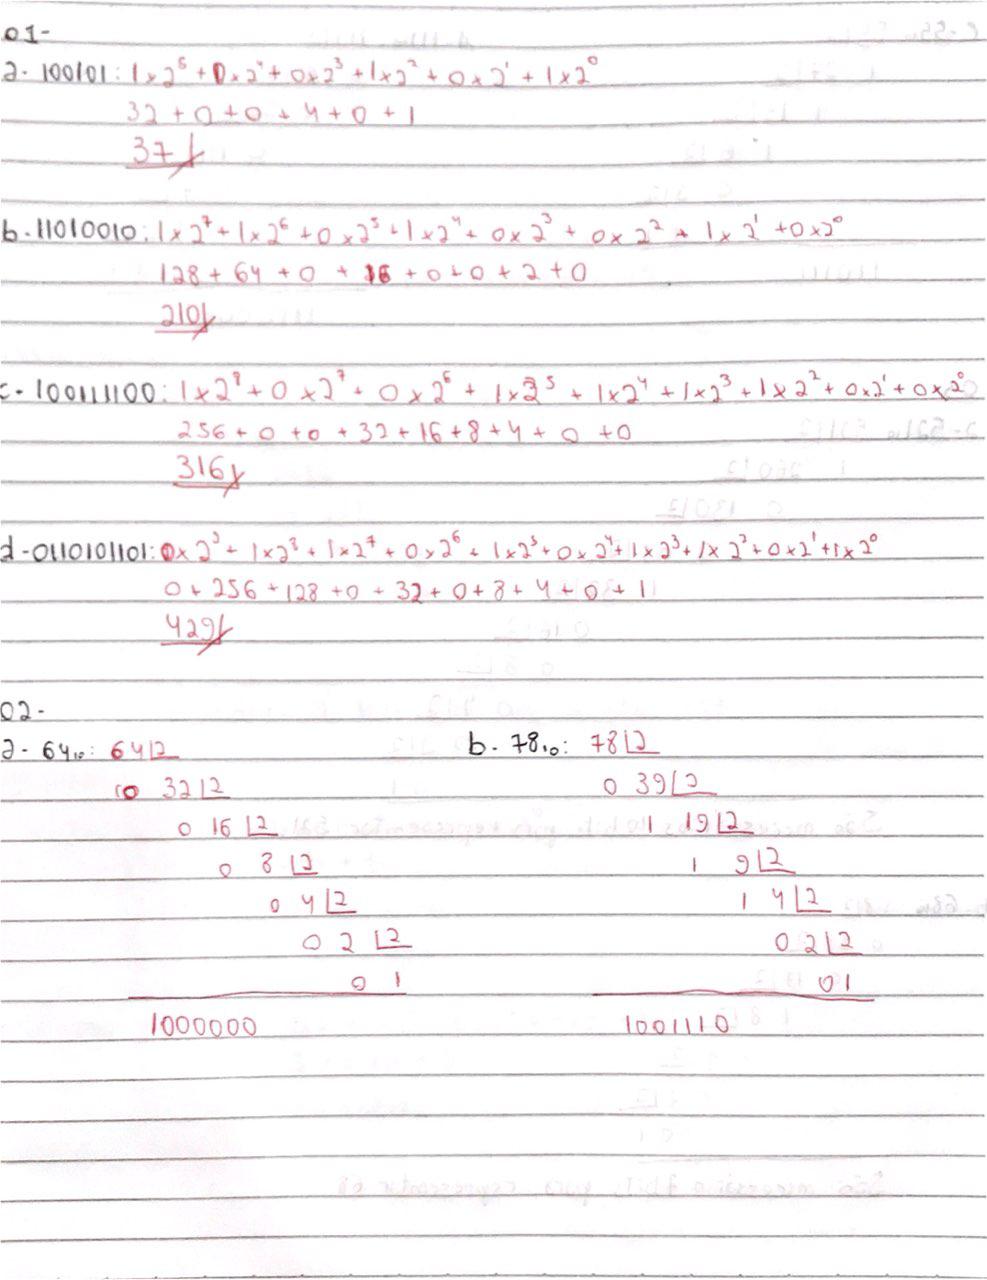 01-
a- 100101: 1x2⁵ + 0x2⁴ + 0x2³ + 1x2² + 0x2¹ + 1x2⁰
32 + 0 + 0 + 4 + 0 + 1
37
b. 11010010: 1x2⁷ + 1x2⁶ + 0x2⁵ + 1x2⁴ + 0x2³ + 0x2² + 1x2¹ + 0x2⁰
128 + 64 + 0 + 16 + 0 + 0 + 2 + 0
210
c- 100111100: 1x2⁸ + 0x2⁷ + 0x2⁶ + 1x2⁵ + 1x2⁴ + 1x2³ + 1x2² + 0x2¹ + 0x2⁰
256 + 0 + 0 + 32 + 16 + 8 + 4 + 0 + 0
316
d-0110101101: 0x2⁹ + 1x2⁸ + 1x2⁷ + 0x2⁶ + 1x2⁵ + 0x2⁴ + 1x2³ + 1x2² + 0x2¹ + 1x2⁰
0 + 256 + 128 + 0 + 32 + 0 + 8 + 4 + 0 + 1
429
02-
a- 64₁₀: 64|2
0 32|2
0 16|2
0 8|2
0 4|2
0 2|2
0 1
1000000
b- 78₁₀: 78|2
0 39|2
1 19|2
1 9|2
1 4|2
0 2|2
0 1
1001110